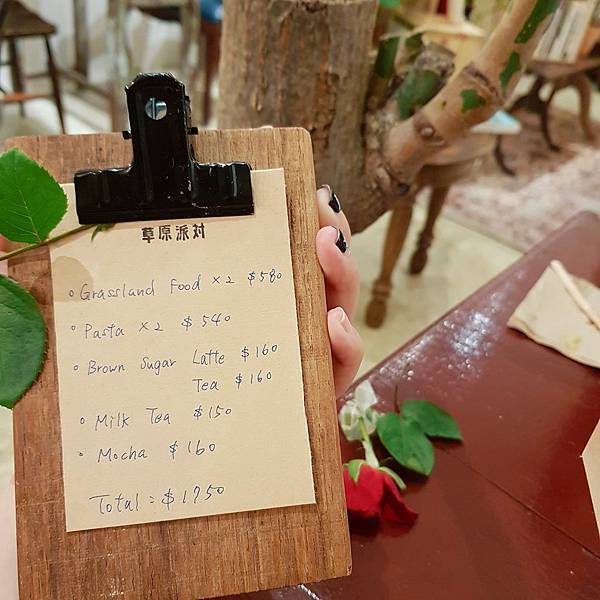 草原派対
Grassland Food × 2 $580
Pasta × 2 $540
Brown Sugar Latte $160
Tea $160
Milk Tea $150
Mocha $160
Total = $1750